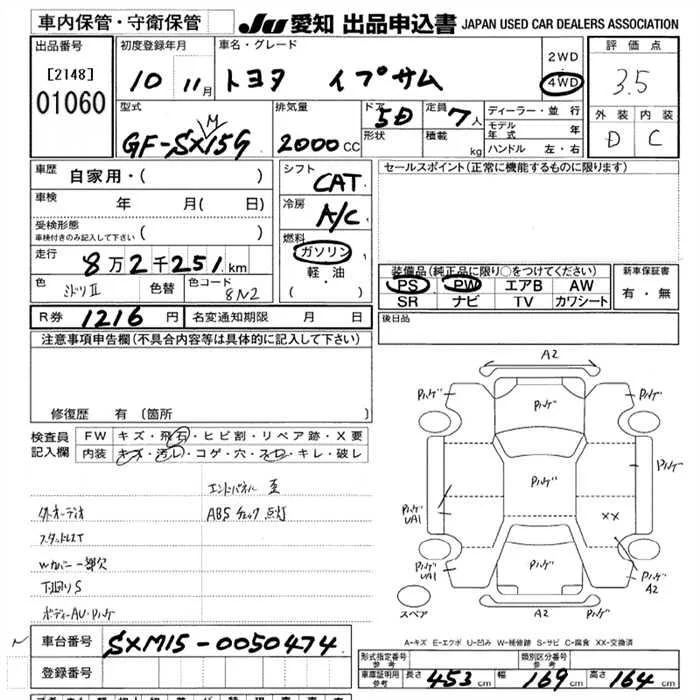 車内保管・守衛保管
JU 愛知 出品申込書 JAPAN USED CAR DEALERS ASSOCIATION
出品番号
[2148]
01060
初度登録年月
10 11月
車名・グレード
トヨタ イプサム
2WD
4WD
評価点
3.5
外装 内装
D C
型式
GF-SXM15G
排気量
2000cc
ドア
5D
形状
定員
7人
積載
kg
ディーラー・並行
モデル年式 年
ハンドル 左・右
車歴
自家用・( )
車検
年 月( 日)
受検形態
車検付きのみ記入して下さい ( )
走行
8万2千251km
色
ミドリII
色替
色コード
8N2
シフト
CAT
冷房
A/C
燃料
ガソリン
軽・油
( )
セールスポイント(正常に機能するものに限ります)
装備品(純正品に限り○をつけてください)
PS PW エアB AW
SR ナビ TV カワシート
新車保証書
有・無
R券 1216円
名変通知期限 月 日
後日品
注意事項申告欄(不具合内容等は具体的に記入して下さい)
修復歴 有(箇所
検査員記入欄
FW キズ・飛石・ヒビ割・リペア跡・X要
内装 キズ・汚レ・コゲ・穴・スレ・キレ・破レ
エンドパネル 歪
社外オーディオ ABSチェック点灯
スタットレスT
Wカバー一部欠
下廻りS
ボディーAU・ハゲ
A2
ハゲ
ハゲ
ハゲ
ハゲ
ハゲ
ハゲ
UA1
XX
ハゲ
UA1
ハゲ
ハゲ
A2
A2
スペア
A-キズ E-エクボ U-凹み W-補修跡 S-サビ C-腐食 XX-交換済
車台番号 SXM15-0050474
登録番号
形式指定番号 参考
類別区分番号 参考
車庫証明用 参考
長さ 453cm 幅 169cm 高さ 164cm